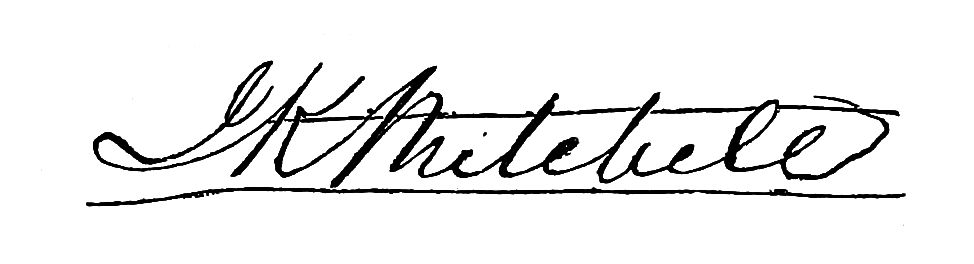 J K Mitchell